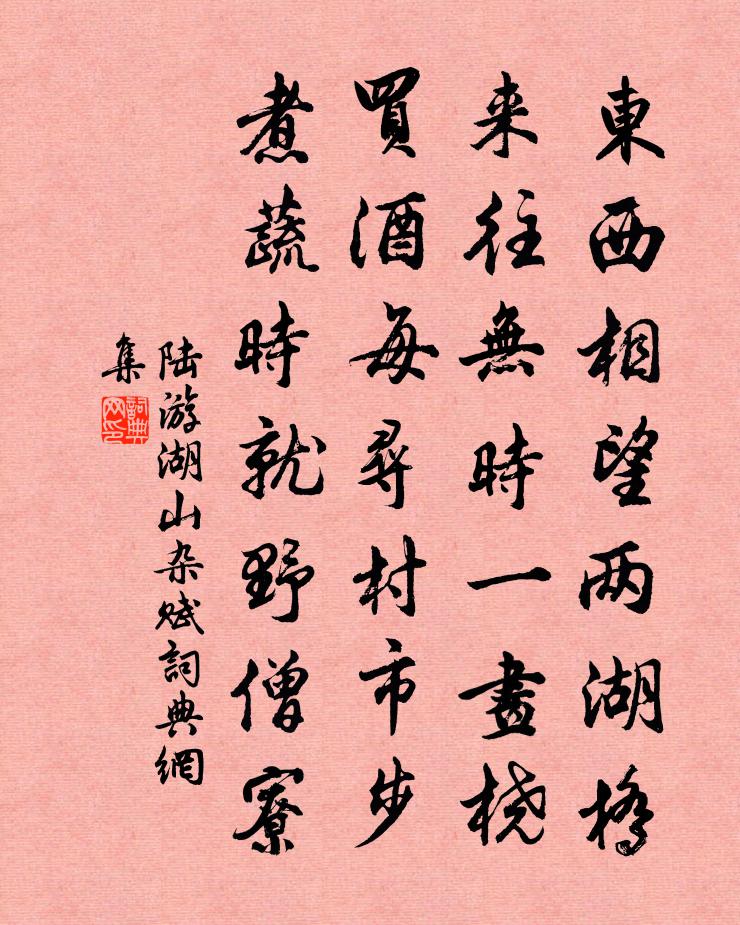 東西相望两湖橋
来往無時一畫桡
買酒每尋村市步
煮蔬時就野僧寮
陆游湖山杂赋詞典網
集
詞典
网印